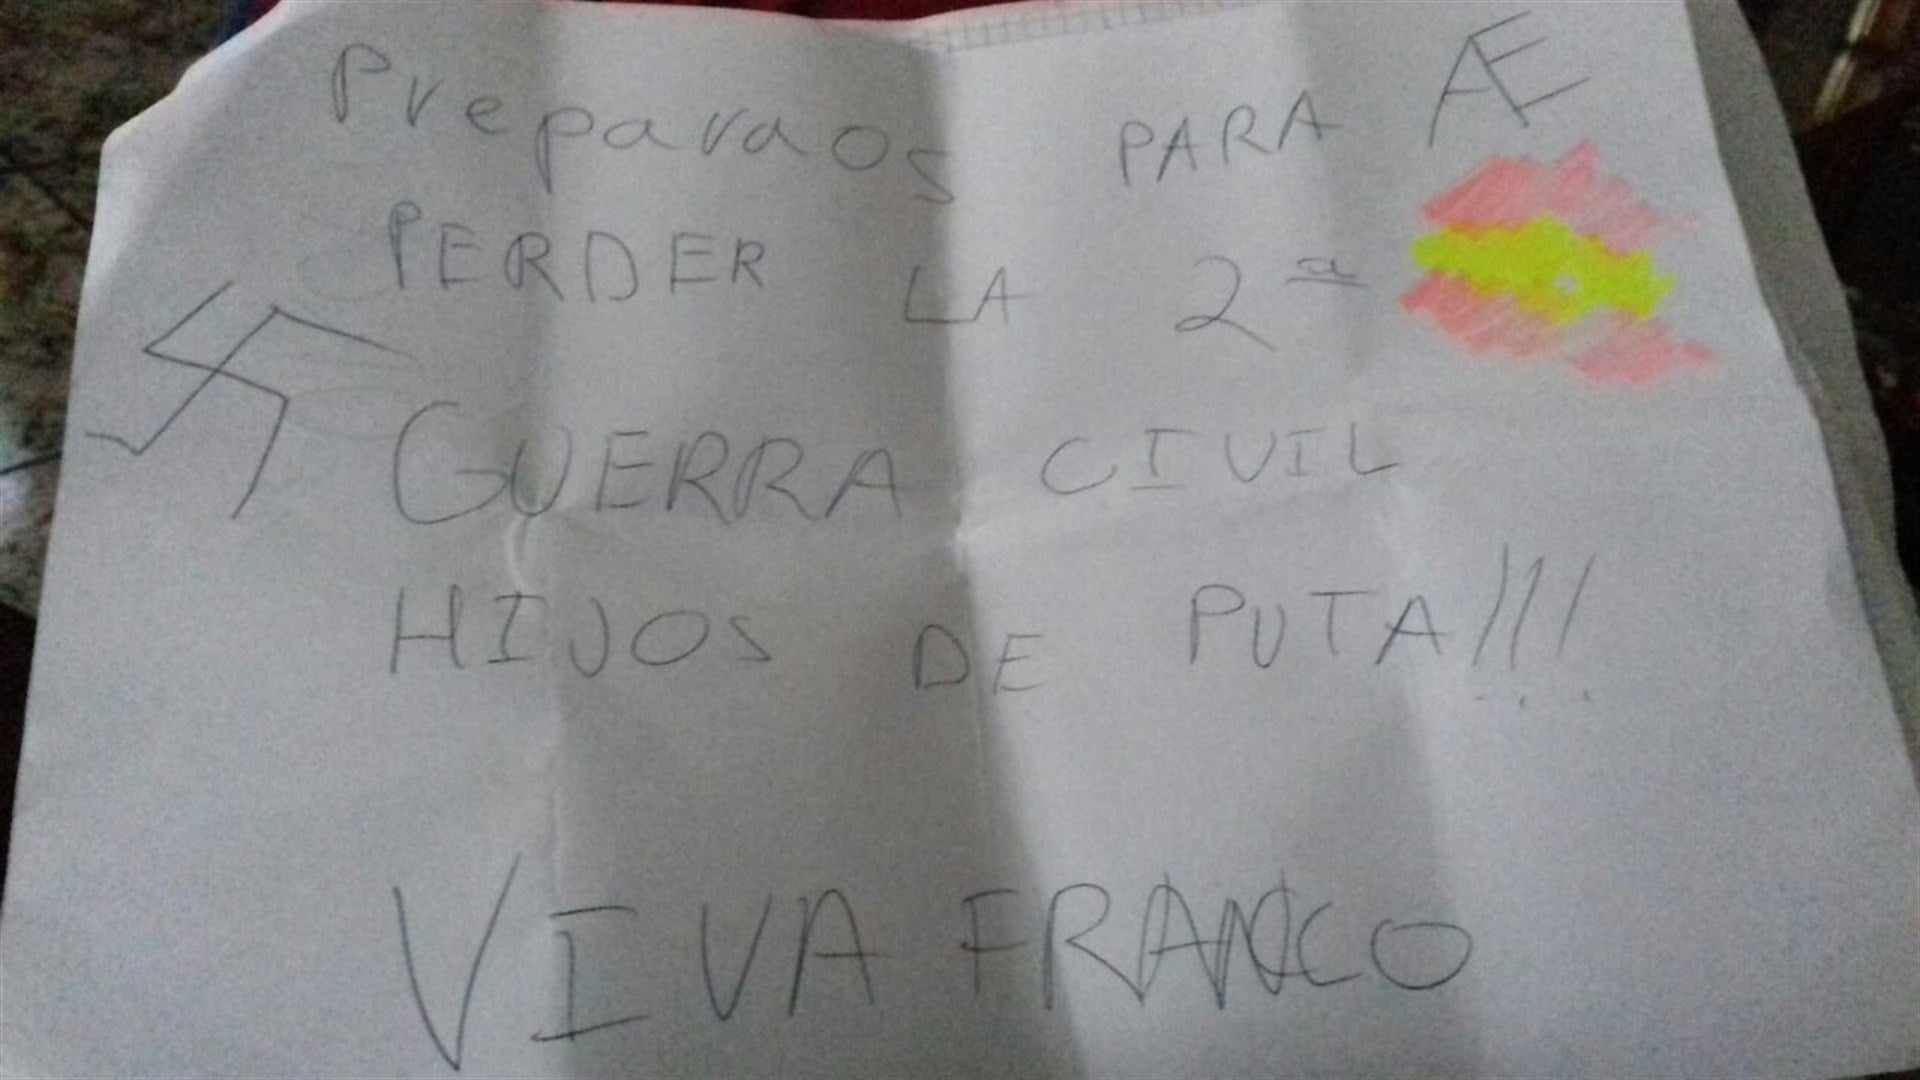 Preparaos PARA Æ
PERDER LA 2ª
GUERRA CIVIL
HIJOS DE PUTA!!!
VIVA FRANCO